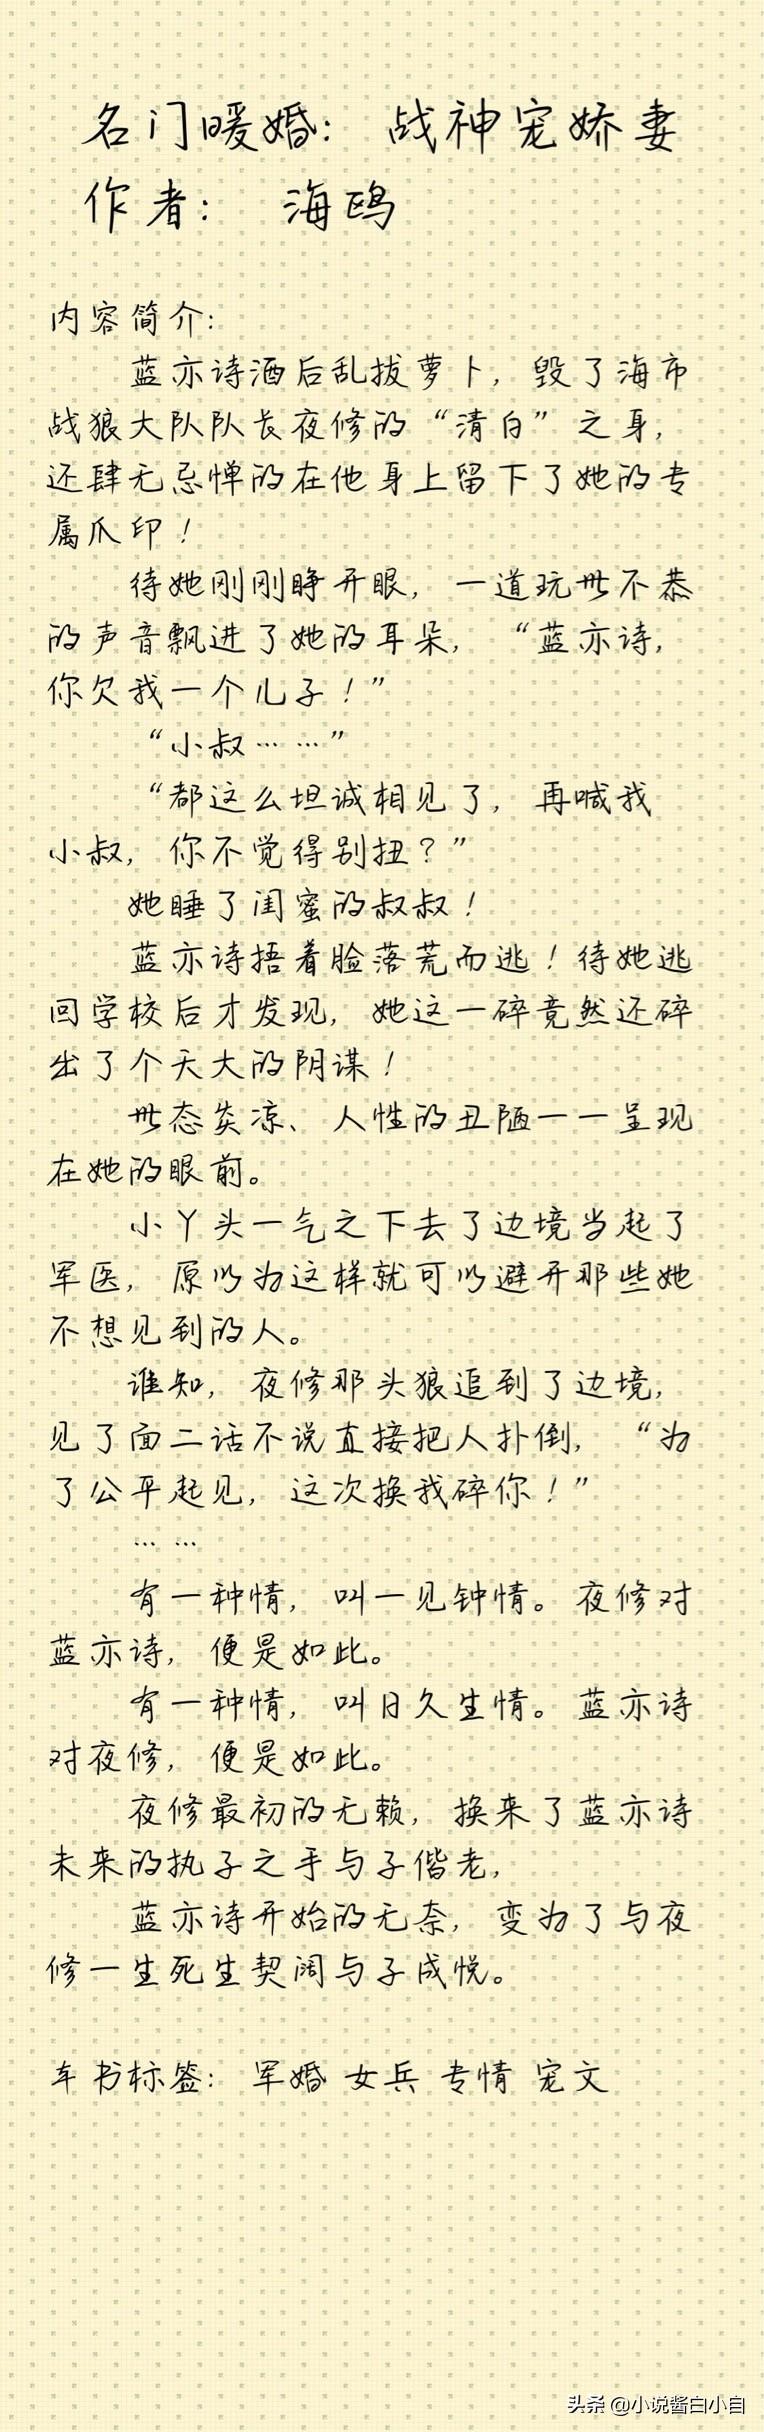 名门暖婚：战神宠娇妻
作者： 海鸥
内容简介：
蓝亦诗酒后乱拔萝卜，毁了海市
战狼大队队长夜修的“清白”之身，
还肆无忌惮的在他身上留下了她的专
属爪印！
待她刚刚睁开眼，一道玩世不恭
的声音飘进了她的耳朵，“蓝亦诗，
你欠我一个儿子！”
“小叔……”
“都这么坦诚相见了，再喊我
小叔，你不觉得别扭？”
她睡了闺蜜的叔叔！
蓝亦诗捂着脸落荒而逃！待她逃
回学校后才发现，她这一碎竟然还碎
出了个天大的阴谋！
世态炎凉、人性的丑陋一一呈现
在她的眼前。
小丫头一气之下去了边境当起了
军医，原以为这样就可以避开那些她
不想见到的人。
谁知，夜修那头狼追到了边境，
见了面二话不说直接把人扑倒，“为
了公平起见，这次换我碎你！”
……
有一种情，叫一见钟情。夜修对
蓝亦诗，便是如此。
有一种情，叫日久生情。蓝亦诗
对夜修，便是如此。
夜修最初的无赖，换来了蓝亦诗
未来的执子之手与子偕老，
蓝亦诗开始的无奈，变为了与夜
修一生死生契阔与子成悦。
本书标签：军婚 女兵 专情 宠文
头条 @小说酱白小白